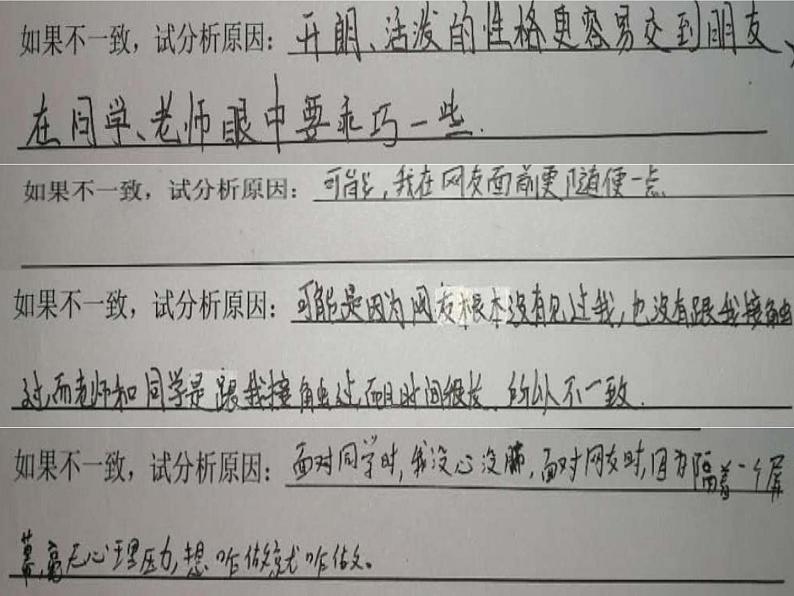 如果不一致，试分析原因：开朗、活泼的性格更容易交到朋友、
在同学、老师眼中要乖巧一些.
如果不一致，试分析原因：可能，我在网友面前更随便一点.
如果不一致，试分析原因：可能是因为网友根本没有见过我，也没有跟我接触
过，而老师和同学是跟我接触过，而且时间很长.所以不一致.
如果不一致，试分析原因：面对同学时，我没心没肺，面对网友时，因为隔着一个屏
幕，毫无心理压力，想咋做就咋做。